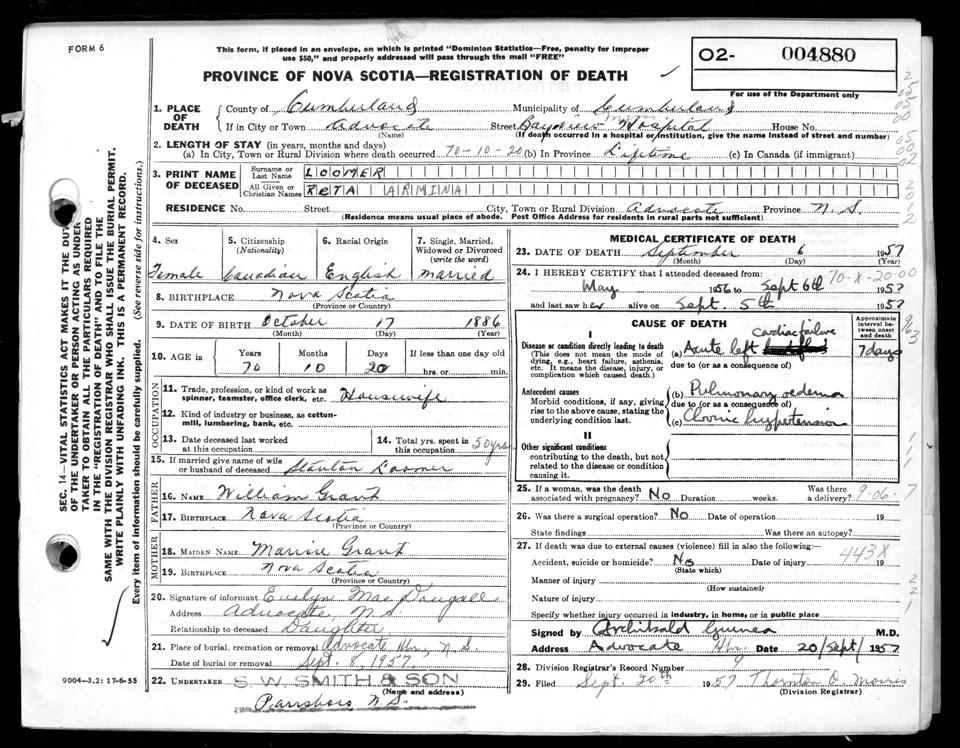 FORM 6
This form, if placed in an envelope, on which is printed "Dominion Statistics—Free, penalty for improper
use $50," and properly addressed will pass through the mail "FREE"
PROVINCE OF NOVA SCOTIA—REGISTRATION OF DEATH
02- 004880
For use of the Department only
1. PLACE OF DEATH
County of Cumberland Municipality of Cumberland
If in City or Town Advocate Street Bayview Hospital House No.
(Name) (If death occurred in a hospital or institution, give the name instead of street and number)
2. LENGTH OF STAY (in years, months and days)
(a) In City, Town or Rural Division where death occurred 70-10-20 (b) In Province Lifetime (c) In Canada (if immigrant)
3. PRINT NAME OF DECEASED
Surname or Last Name LOOMER
All Given or Christian Names RETA ARMINA
RESIDENCE No. Street City, Town or Rural Division Advocate Province N.S.
(Residence means usual place of abode. Post Office Address for residents in rural parts not sufficient)
4. Sex
Female
5. Citizenship (Nationality)
Canadian
6. Racial Origin
English
7. Single, Married, Widowed or Divorced (write the word)
Married
8. BIRTHPLACE Nova Scotia
(Province or Country)
9. DATE OF BIRTH October 17 1886
(Month) (Day) (Year)
10. AGE in Years Months Days If less than one day old
70 10 20 hrs. or min.
OCCUPATION
11. Trade, profession, or kind of work as spinner, teamster, office clerk, etc. Housewife
12. Kind of industry or business, as cotton-mill, lumbering, bank, etc.
13. Date deceased last worked at this occupation
14. Total yrs. spent in this occupation 50 yrs
15. If married give name of wife or husband of deceased Stanton Loomer
FATHER
16. NAME William Grant
17. BIRTHPLACE Nova Scotia
(Province or Country)
MOTHER
18. MAIDEN NAME Grant
19. BIRTHPLACE Nova Scotia
(Province or Country)
20. Signature of informant Evelyn MacDougall
Address Advocate, N.S
Relationship to deceased Daughter
21. Place of burial, cremation or removal Advocate Hbr, N.S.
Date of burial or removal Sept. 8, 1957
22. UNDERTAKER S. W. SMITH & SON
(Name and address)
Parrsboro N.S.
9004-3.2: 17-6-55
MEDICAL CERTIFICATE OF DEATH
23. DATE OF DEATH September 6 1957
(Month) (Day) (Year)
24. I HEREBY CERTIFY that I attended deceased from:
70-X-20-00
May 1956 to Sept 6th 1957
and last saw her alive on Sept. 5th 1957
CAUSE OF DEATH
Approximate interval between onset and death
I
Disease or condition directly leading to death
(This does not mean the mode of dying, e.g., heart failure, asthenia, etc. It means the disease, injury, or complication which caused death.)
(a) Acute left cardiac failure 7 days
due to (or as a consequence of)
Antecedent causes
Morbid conditions, if any, giving rise to the above cause, stating the underlying condition last.
(b) Pulmonary oedema
due to (or as a consequence of)
(c) Chronic hypertension
II
Other significant conditions
contributing to the death, but not related to the disease or condition causing it.
25. If a woman, was the death associated with pregnancy? No Duration weeks. Was there a delivery?
9-06-7
26. Was there a surgical operation? No Date of operation 19
State findings Was there an autopsy?
27. If death was due to external causes (violence) fill in also the following:—
443X
Accident, suicide or homicide? No Date of injury 19
(State which)
Manner of injury
(How sustained)
Nature of injury
Specify whether injury occurred in industry, in home, or in public place
Signed by Archibald Guinea M.D.
Address Advocate Hbr Date 20/Sept/1957
28. Division Registrar's Record Number
29. Filed Sept. 20th 1957 Thornton O. Morris
(Division Registrar)
SEC. 14—VITAL STATISTICS ACT MAKES IT THE DUTY
OF THE UNDERTAKER OR PERSON ACTING AS UNDER
TAKER TO OBTAIN ALL THE PARTICULARS REQUIRED
IN THE "REGISTRATION OF DEATH" AND TO FILE THE
SAME WITH THE DIVISION REGISTRAR WHO SHALL ISSUE THE BURIAL PERMIT.
WRITE PLAINLY WITH UNFADING INK. THIS IS A PERMANENT RECORD.
Every item of information should be carefully supplied. (See reverse side for instructions.)